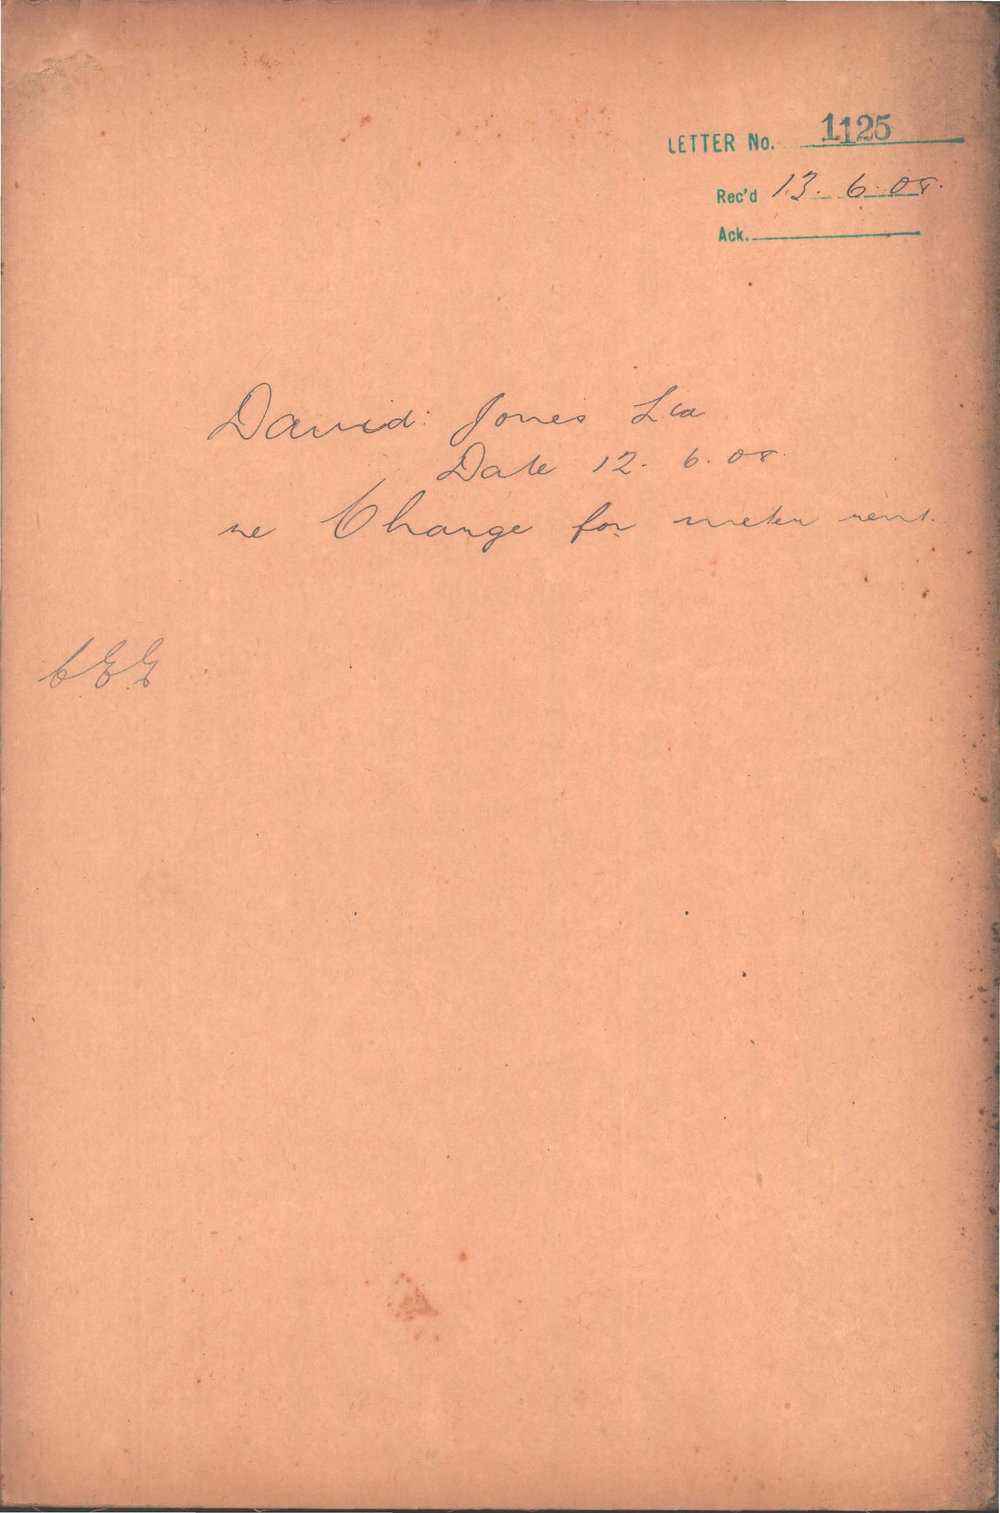 LETTER No. 1125
Rec'd 13. 6. 08.
Ack.
David Jones Ltd
Date 12. 6. 08.
re Charge for meter rent.
CEE